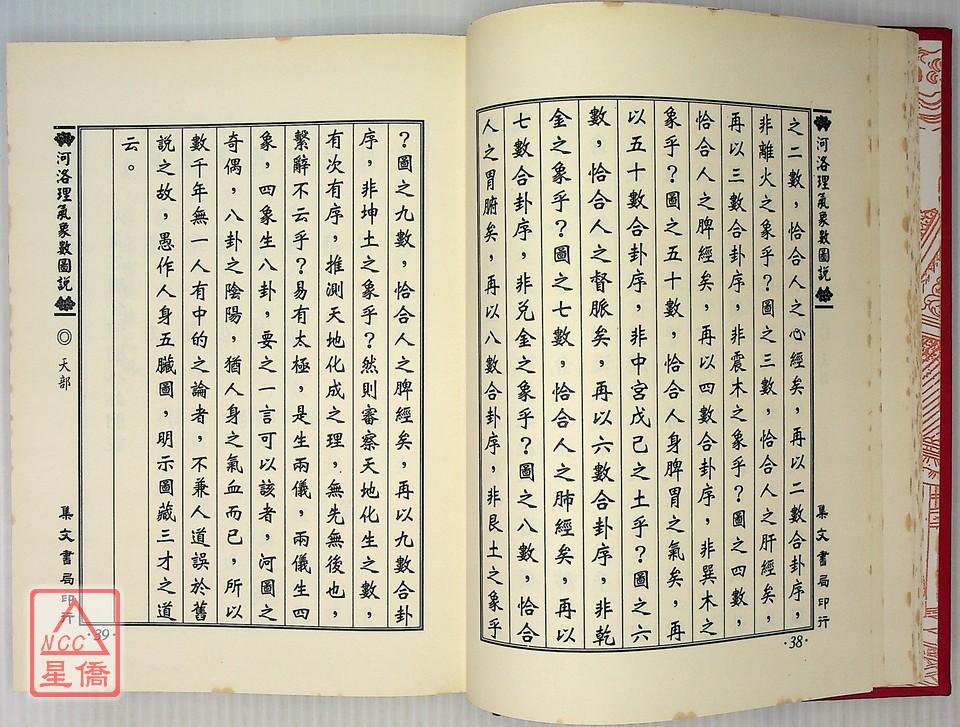 河洛理氣象數圖說
集文書局印行
·38·
之二數，恰合人之心經矣，再以二數合卦序，
非離火之象乎？圖之三數，恰合人之肝經矣，
再以三數合卦序，非震木之象乎？圖之四數，
恰合人之脾經矣，再以四數合卦序，非巽木之
象乎？圖之五十數，恰合人身脾胃之氣矣，再
以五十數合卦序，非中宮戊己之土乎？圖之六
數，恰合人之督脈矣，再以六數合卦序，非乾
金之象乎？圖之七數，恰合人之肺經矣，再以
七數合卦序，非兌金之象乎？圖之八數，恰合
人之胃腑矣，再以八數合卦序，非艮土之象乎
？圖之九數，恰合人之脾經矣，再以九數合卦
序，非坤土之象乎？然則審察天地化生之數，
有次有序，推測天地化成之理，無先無後也，
繫辭不云乎？易有太極，是生兩儀，兩儀生四
象，四象生八卦，要之一言可以該者，河圖之
奇偶，八卦之陰陽，猶人身之氣血而已，所以
數千年無一人有中的之論者，不兼人道誤於舊
說之故，愚作人身五臟圖，明示圖藏三才之道
云。
河洛理氣象數圖說
◎天部
集文書局印行
·39·
NCC
星僑